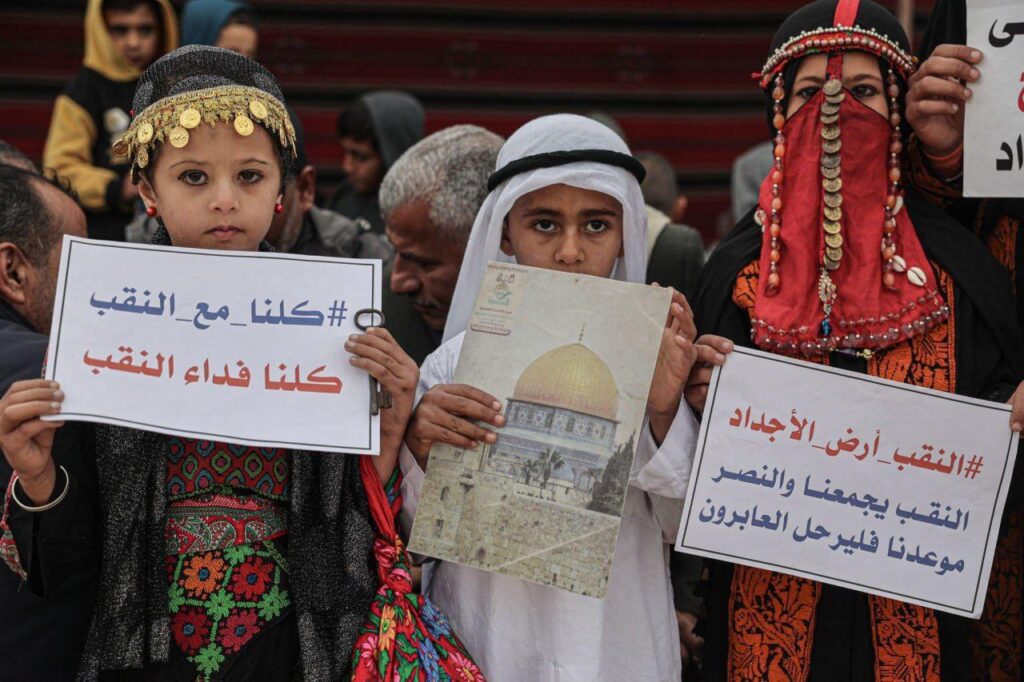 #كلنا_مع_النقب
كلنا فداء النقب
#النقب_أرض_الأجداد
النقب يجمعنا والنصر
موعدنا فليرحل العابرون